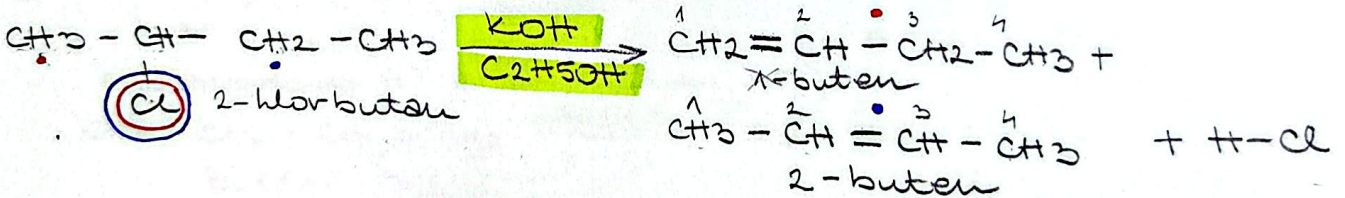 CH3 - CH - CH2 - CH3 KOH C2H5OH → 1 CH2 = 2 CH - 3 CH2 - 4 CH3 +
Cl 2-klorbutan 1-buten
1 CH3 - 2 CH = 3 CH - 4 CH3 + H-Cl
2-buten